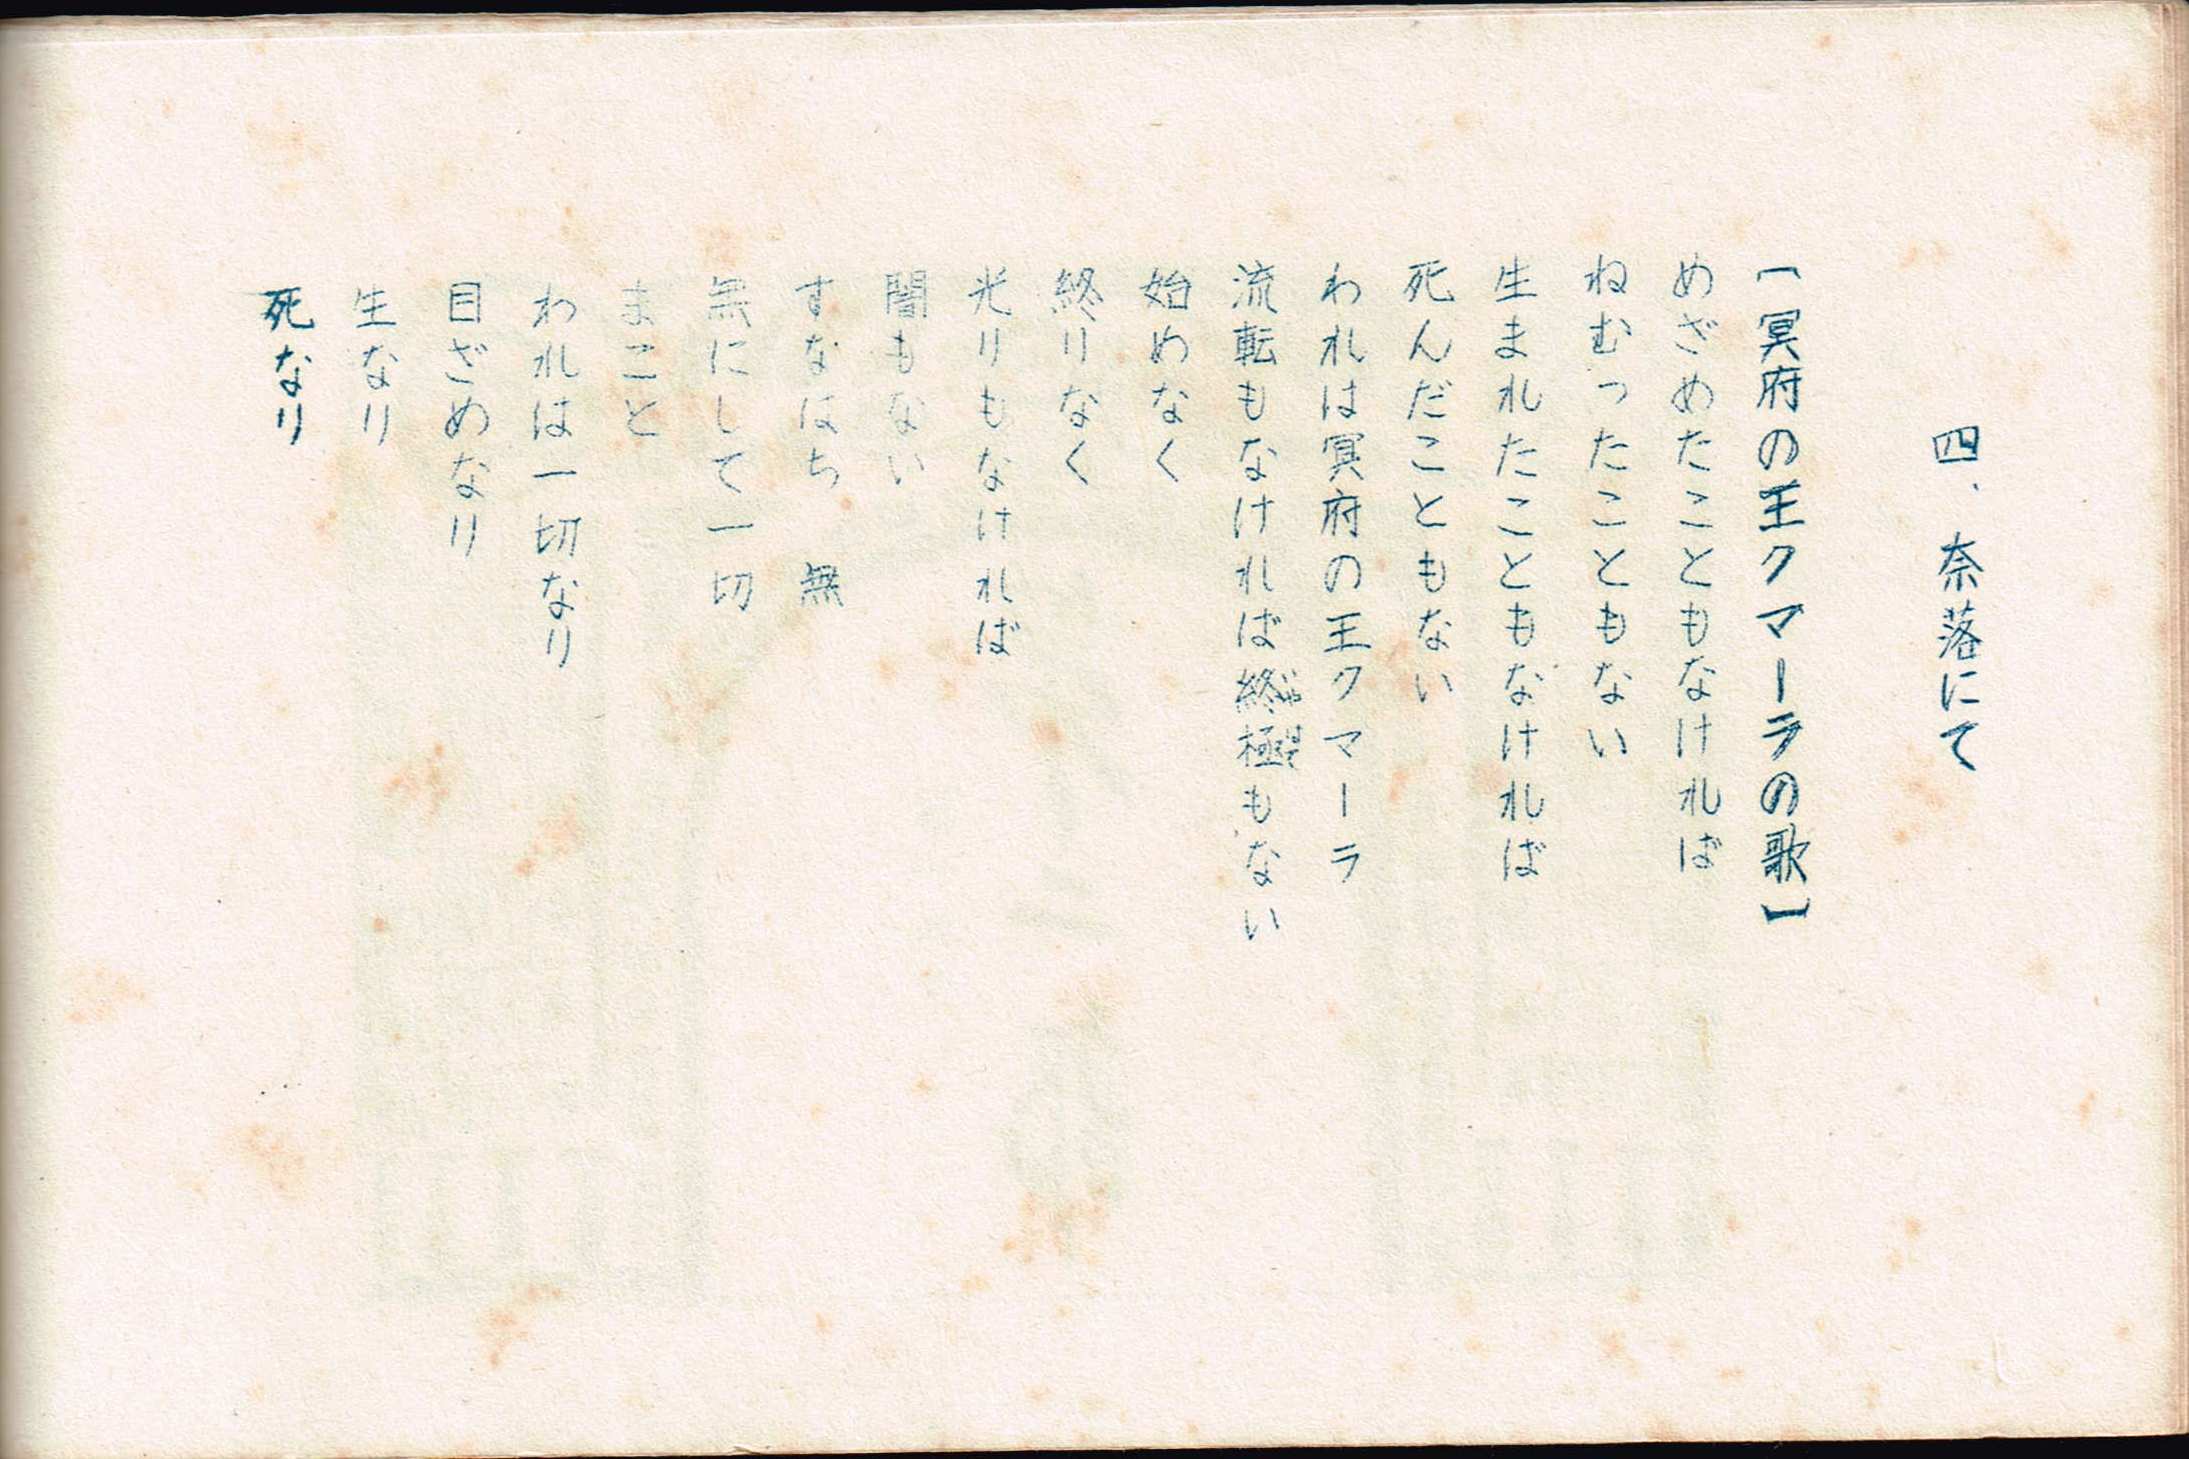 四、奈落にて
【冥府の王クマーラの歌】
めざめたこともなければ
ねむったこともない
生まれたこともなければ
死んだこともない
われは冥府の王クマーラ
流転もなければ終極もない
始めなく
終りなく
光りもなければ
闇もない
すなはち　無
無にして一切
まこと
われは一切なり
目ざめなり
生なり
死なり